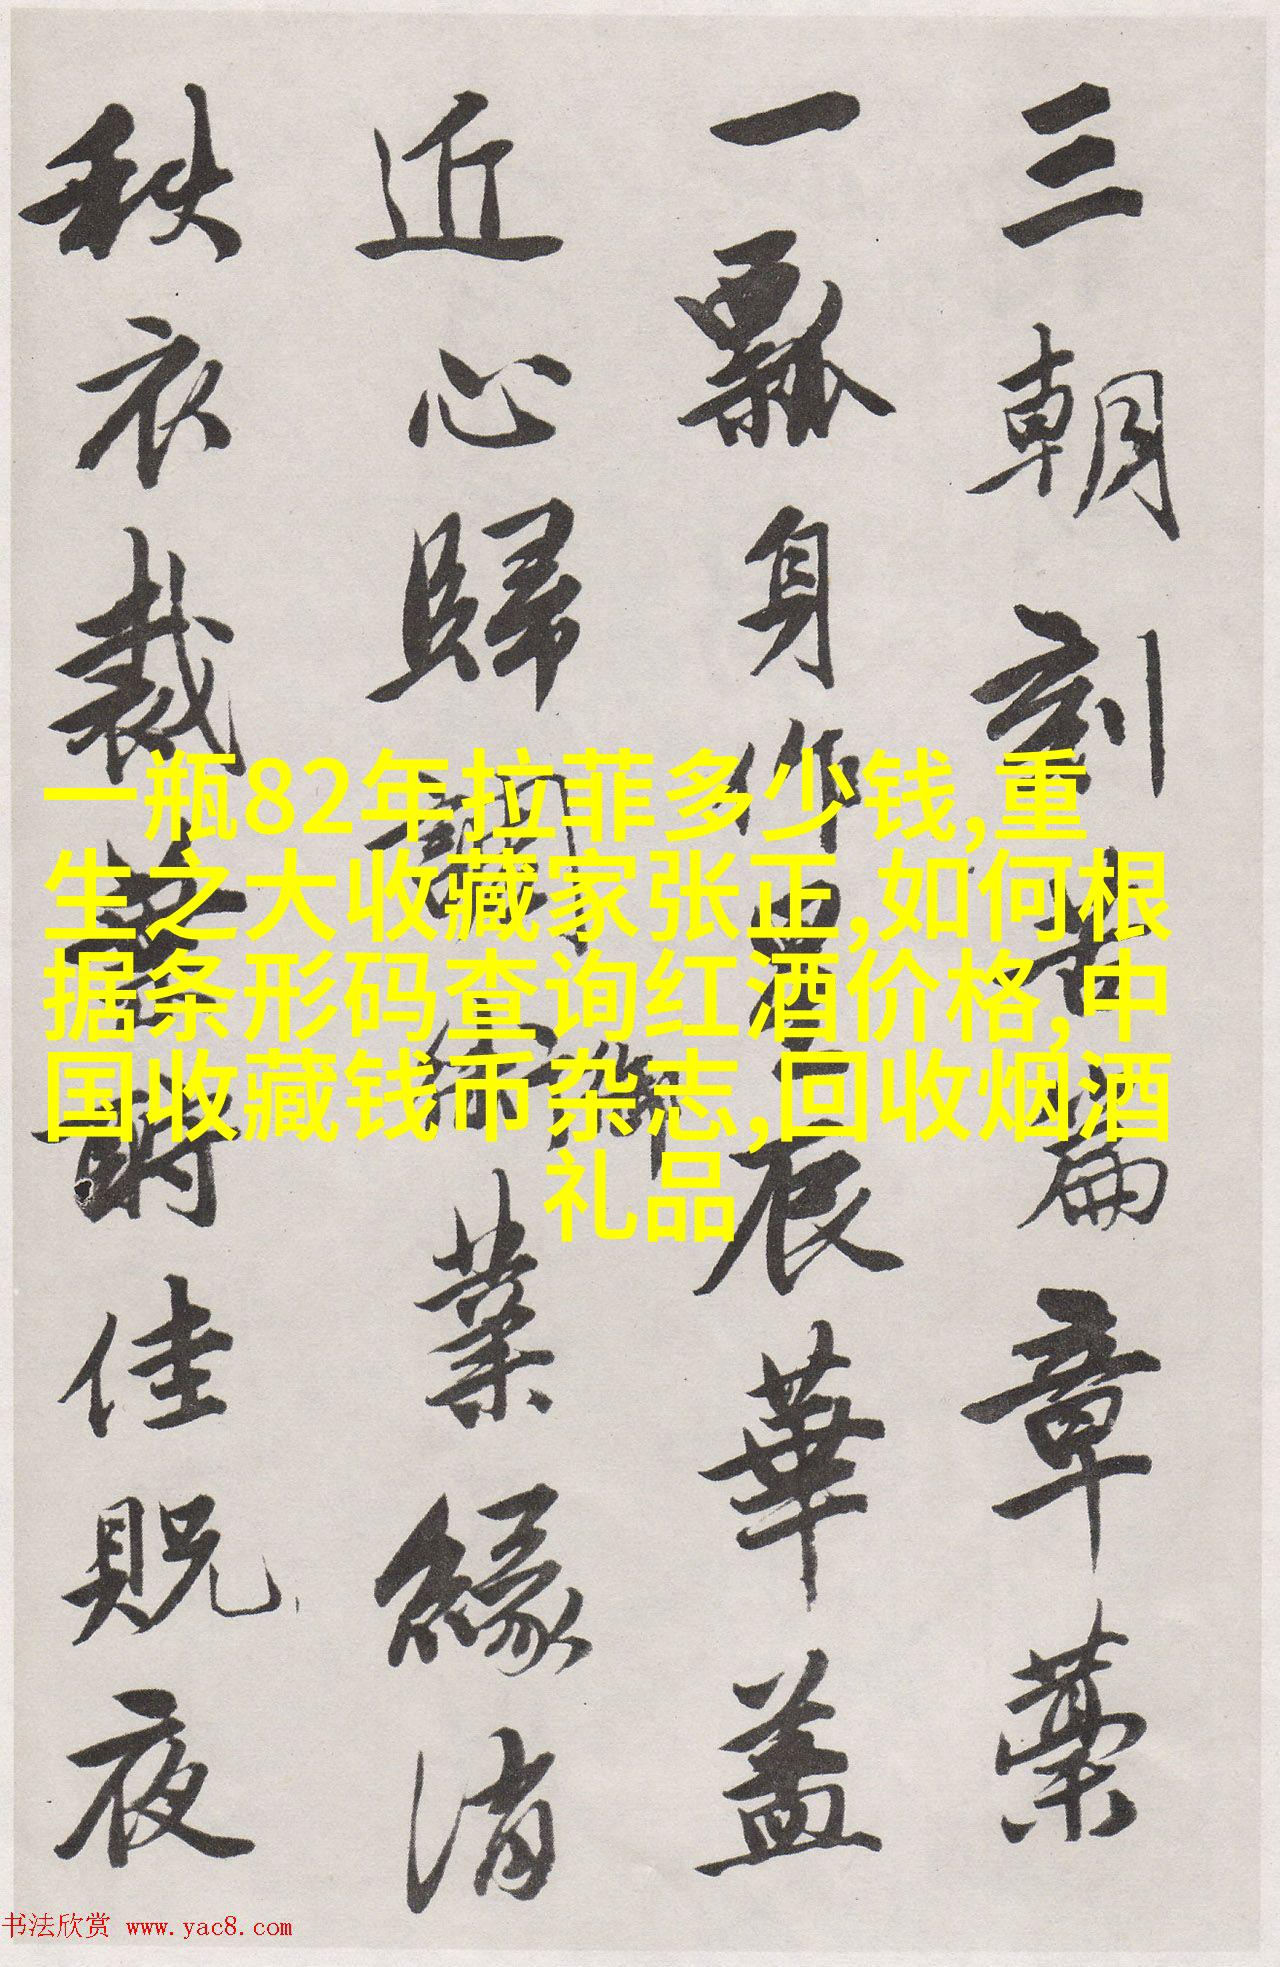 三朝刻篇章藁
一瓢身作辰華蓋
近心歸調御業緣消
秩衣裁爵佳貺夜
一瓶82年拉菲多少钱,重
生之大收藏家张正,如何根
据条形码查询红酒价格,中
国收藏钱币杂志,回收烟酒
礼品
书法欣赏 www.yac8.com